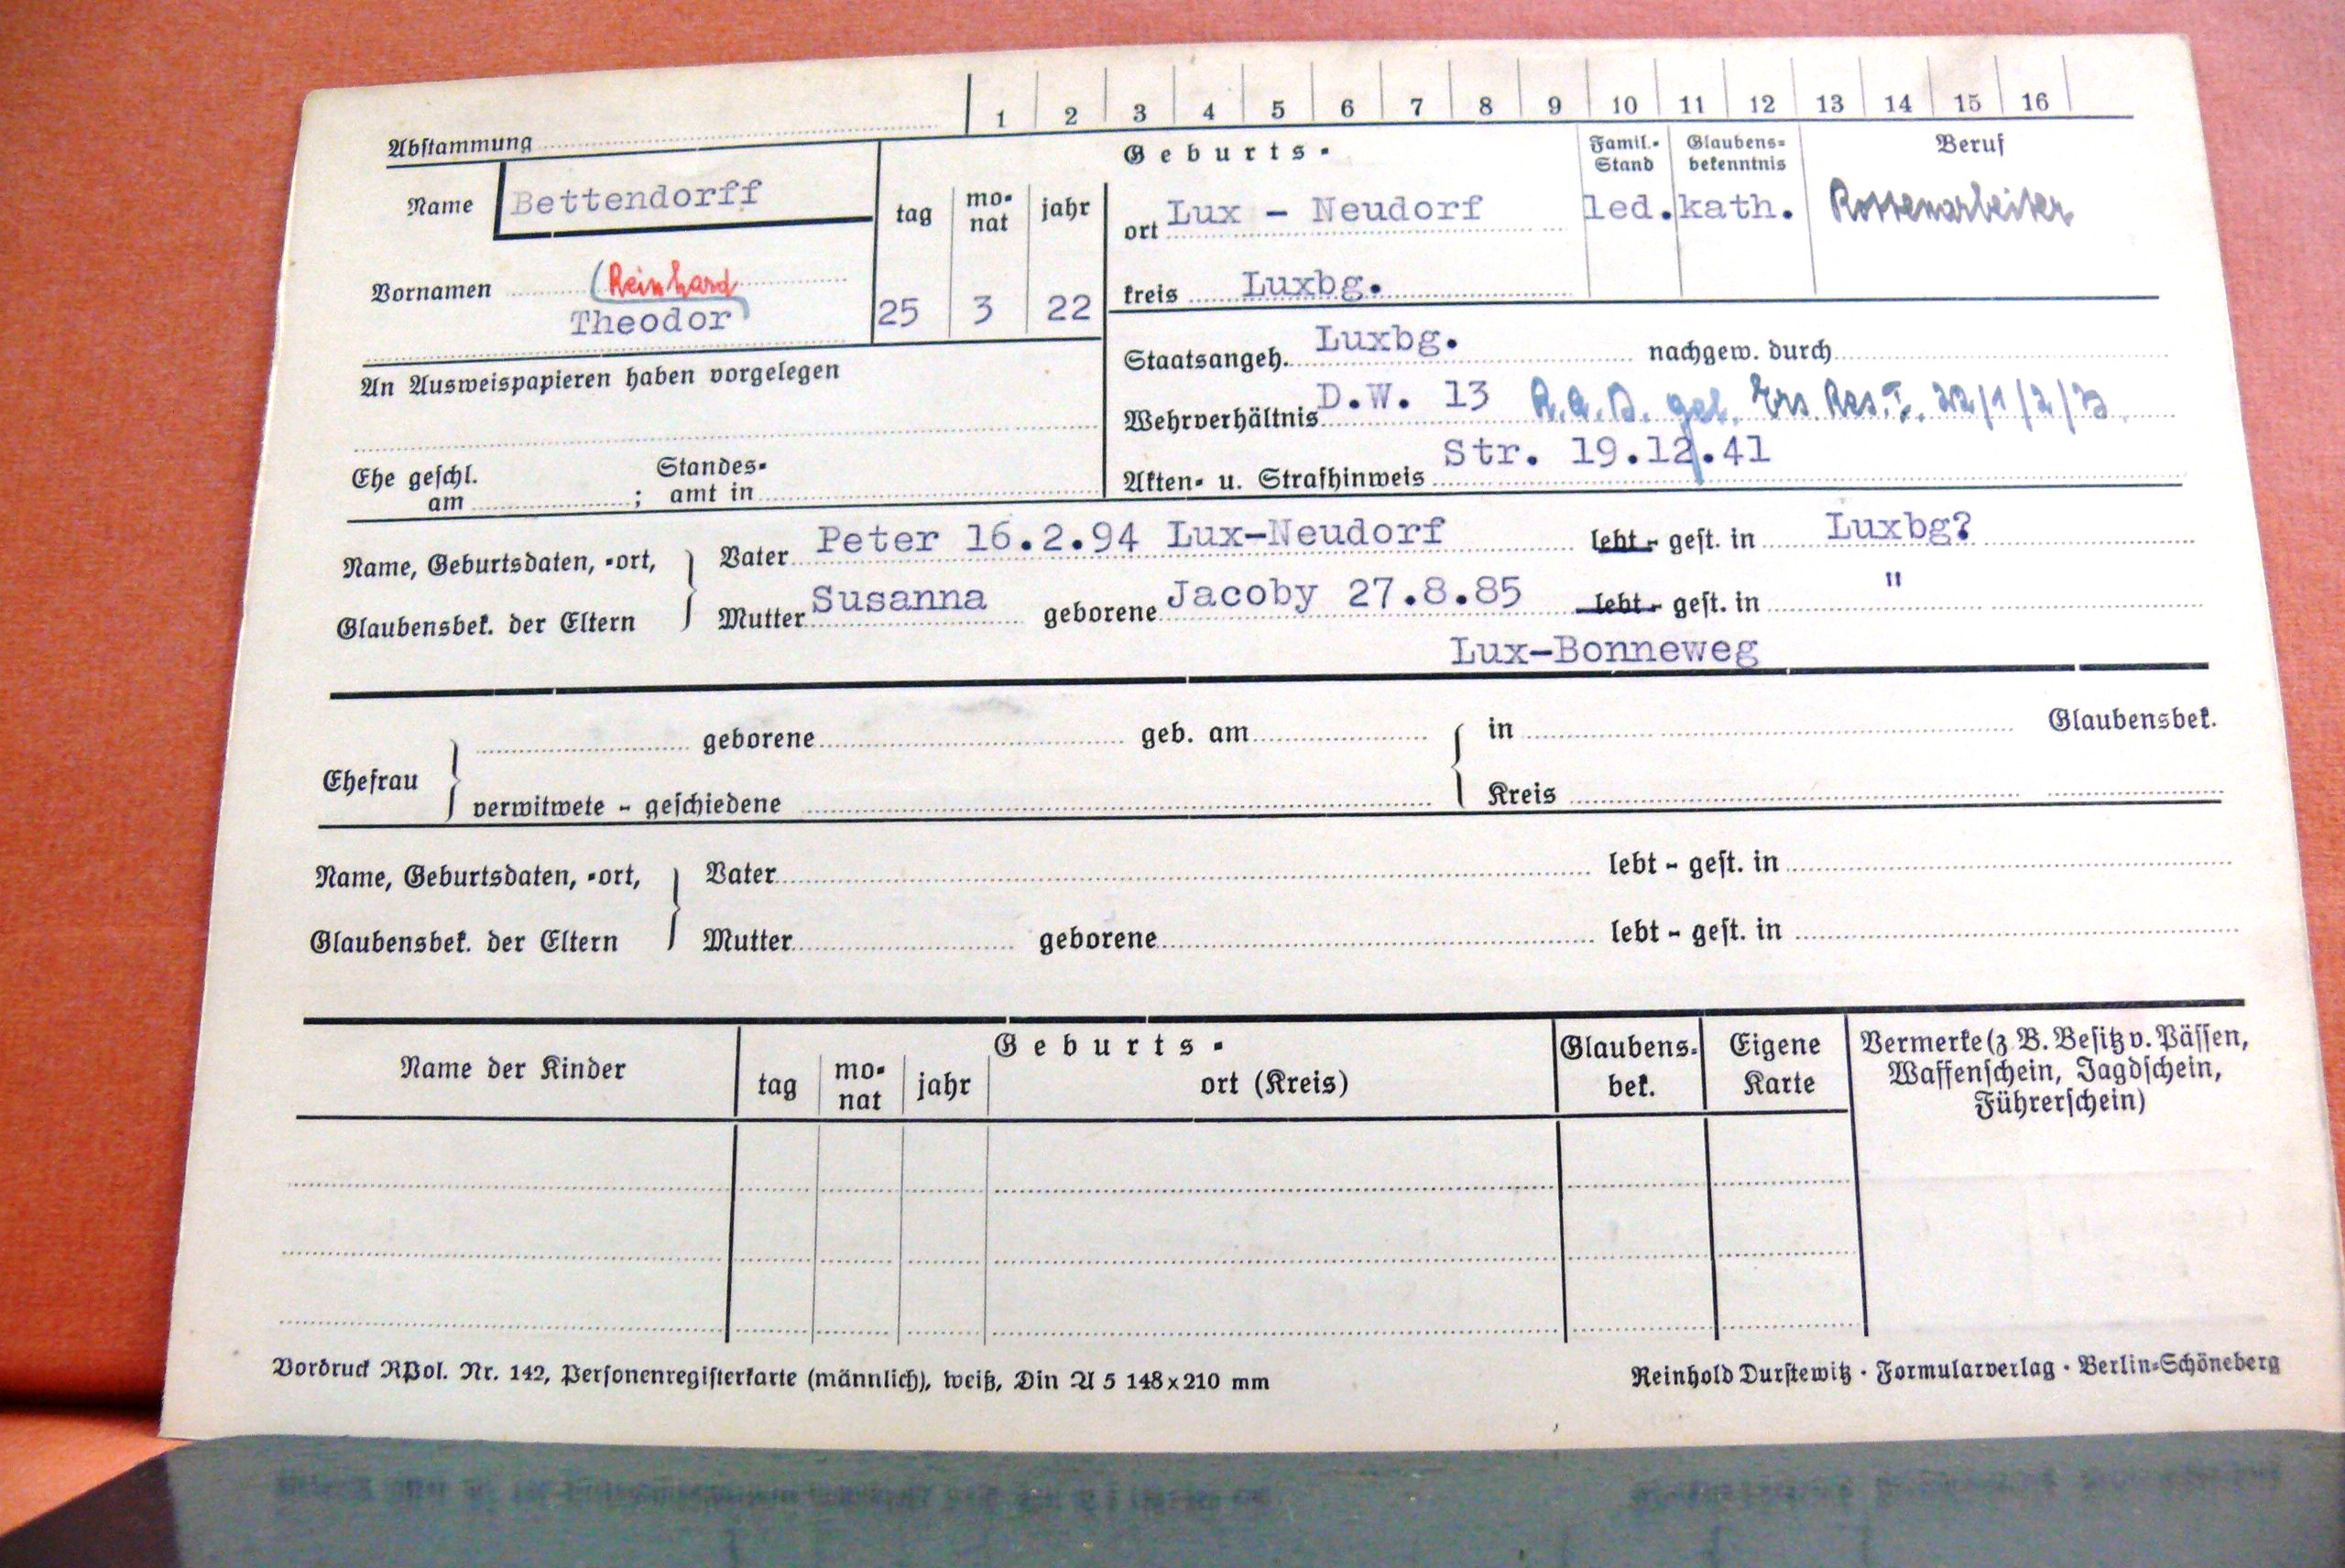 1 2 3 4 5 6 7 8 9 10 11 12 13 14 15 16
Abstammung
Geburts-
Famil.-Stand Glaubens-bekenntnis Beruf
Name Bettendorff
tag monat jahr
ort Lux - Neudorf led. kath. Rottenarbeiter
Vornamen (Reinhard
Theodor
25 3 22
kreis Luxbg.
Staatsangeh. Luxbg. nachgew. durch
An Ausweispapieren haben vorgelegen
Wehrverhältnis D.W. 13 R.A.D. gel. Ers. Res. I.
Akten- u. Strafhinweis Str. 19.12.41
Ehe geschl. am ; Standes-amt in
Name, Geburtsdaten, -ort,
Glaubensbek. der Eltern
Vater Peter 16.2.94 Lux-Neudorf lebt - gest. in Luxbg?
Mutter Susanna geborene Jacoby 27.8.85 lebt - gest. in "
Lux-Bonneweg
Ehefrau
geborene geb. am in Glaubensbek.
verwitwete - geschiedene Kreis
Name, Geburtsdaten, -ort,
Glaubensbek. der Eltern
Vater lebt - gest. in
Mutter geborene lebt - gest. in
Name der Kinder
Geburts-
tag monat jahr ort (Kreis)
Glaubens-bek.
Eigene Karte
Vermerke (z. B. Besitz v. Pässen,
Waffenschein, Jagdschein,
Führerschein)
Vordruck RPol. Nr. 142, Personenregisterkarte (männlich), weiß, Din A 5 148x210 mm
Reinhold Durstewitz · Formularverlag · Berlin-Schöneberg